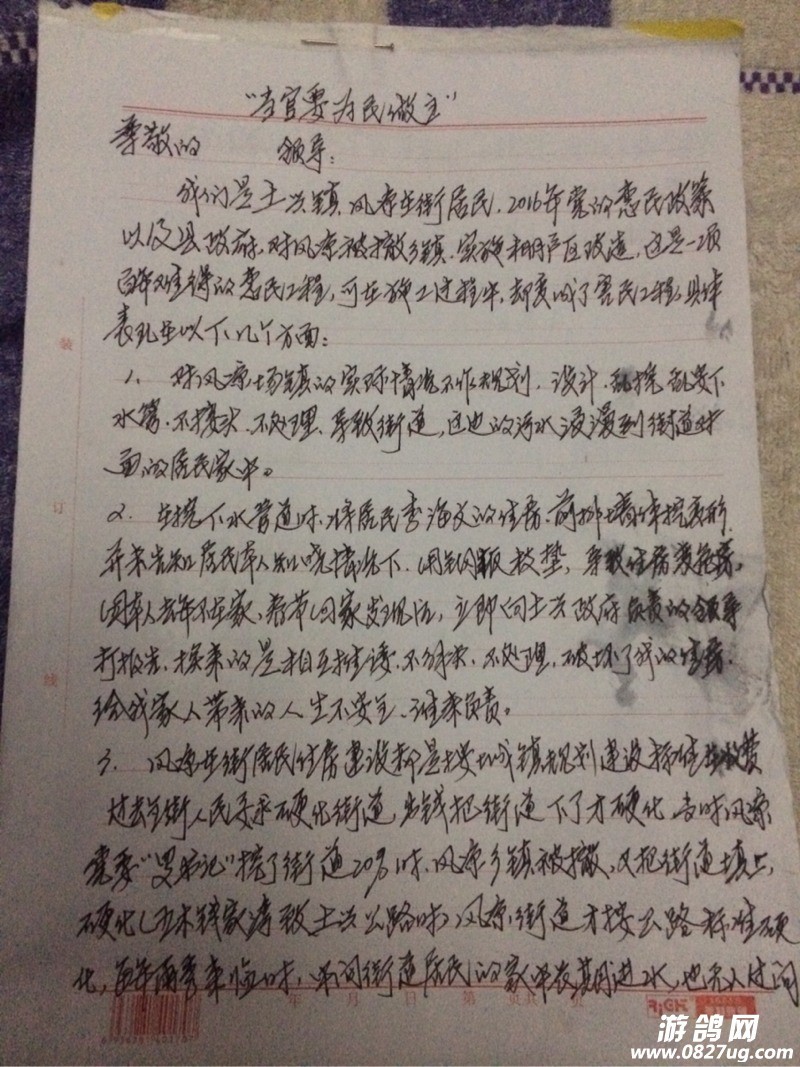 "当官要为民做主"
尊敬的 领导：
我们是土兴镇凤凉生街居民，2016年党的惠民政策
以及县政府，对凤凉被撤乡镇，实施棚户区改造，这是一项
百年难得的惠民工程，可在施工过程中，却变成了害民工程，具体
表现在以下几个方面：
1、对凤凉场镇的实际情况不作规划、设计、乱挖乱安下
水管、不接头、不处理、导致街道，这边的污水浸漫到街道对
面的居民家中。
2、在挖下水管道时，将居民李海文的住房，前排墙体挖变形
并未告知居民本人知晓情况下，用钢板支垫，导致住房
因本人去年不在家，春节回家发现后，立即向土兴政府负责的领导
打报告，换来的是相互推诿，不解决，不处理，破坏了我的住房，
给我家人带来的人生不安全，谁来负责。
3、凤凉生街居民住房建设都是按 城镇规划建设标准
过去全街人民要求硬化街道，出钱把街道下了才硬化，当时凤凉
党委"罗书记"挖了街道20% 时，凤凉乡镇被撤，又把街道填上，
硬化 土兴公路时，凤凉街道才按公路标准硬
化，每年雨季来临时，半间街道居民的家中 进水，也无人过问
年 月 日 第 页
装
订
线
RiGHT
游鸽网
www.0827ug.com